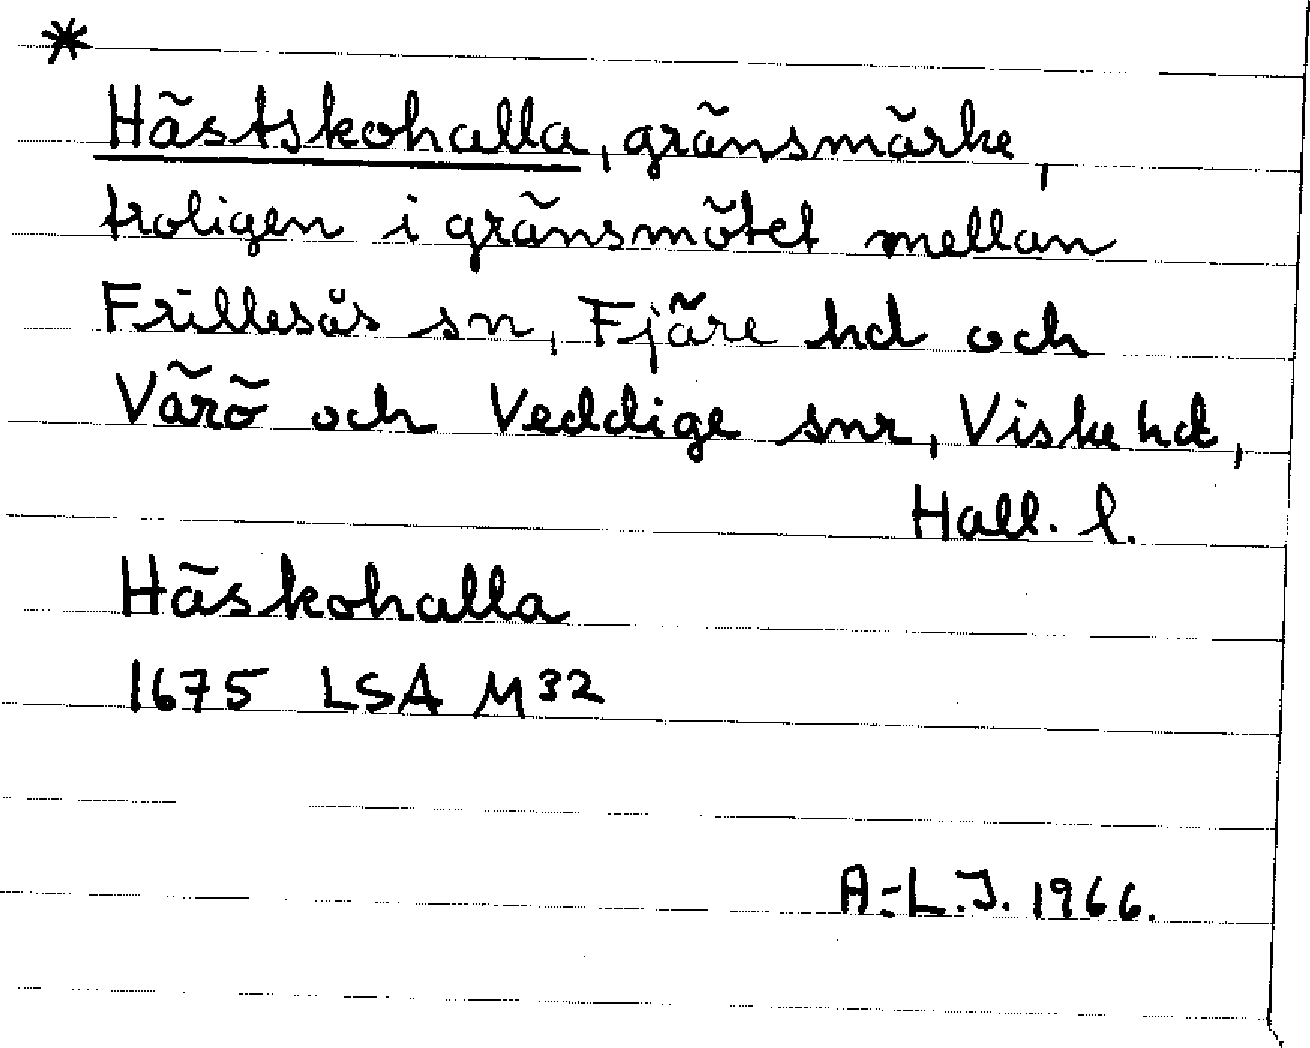 *
Hästskohalla, gränsmärke,
troligen i gränsmötet mellan
Frillesås sn, Fjäre hd och
Värö och Veddige snr, Viske hd,
Hall. l.
Häskohalla
1675 LSA M32
A-L.J. 1966.